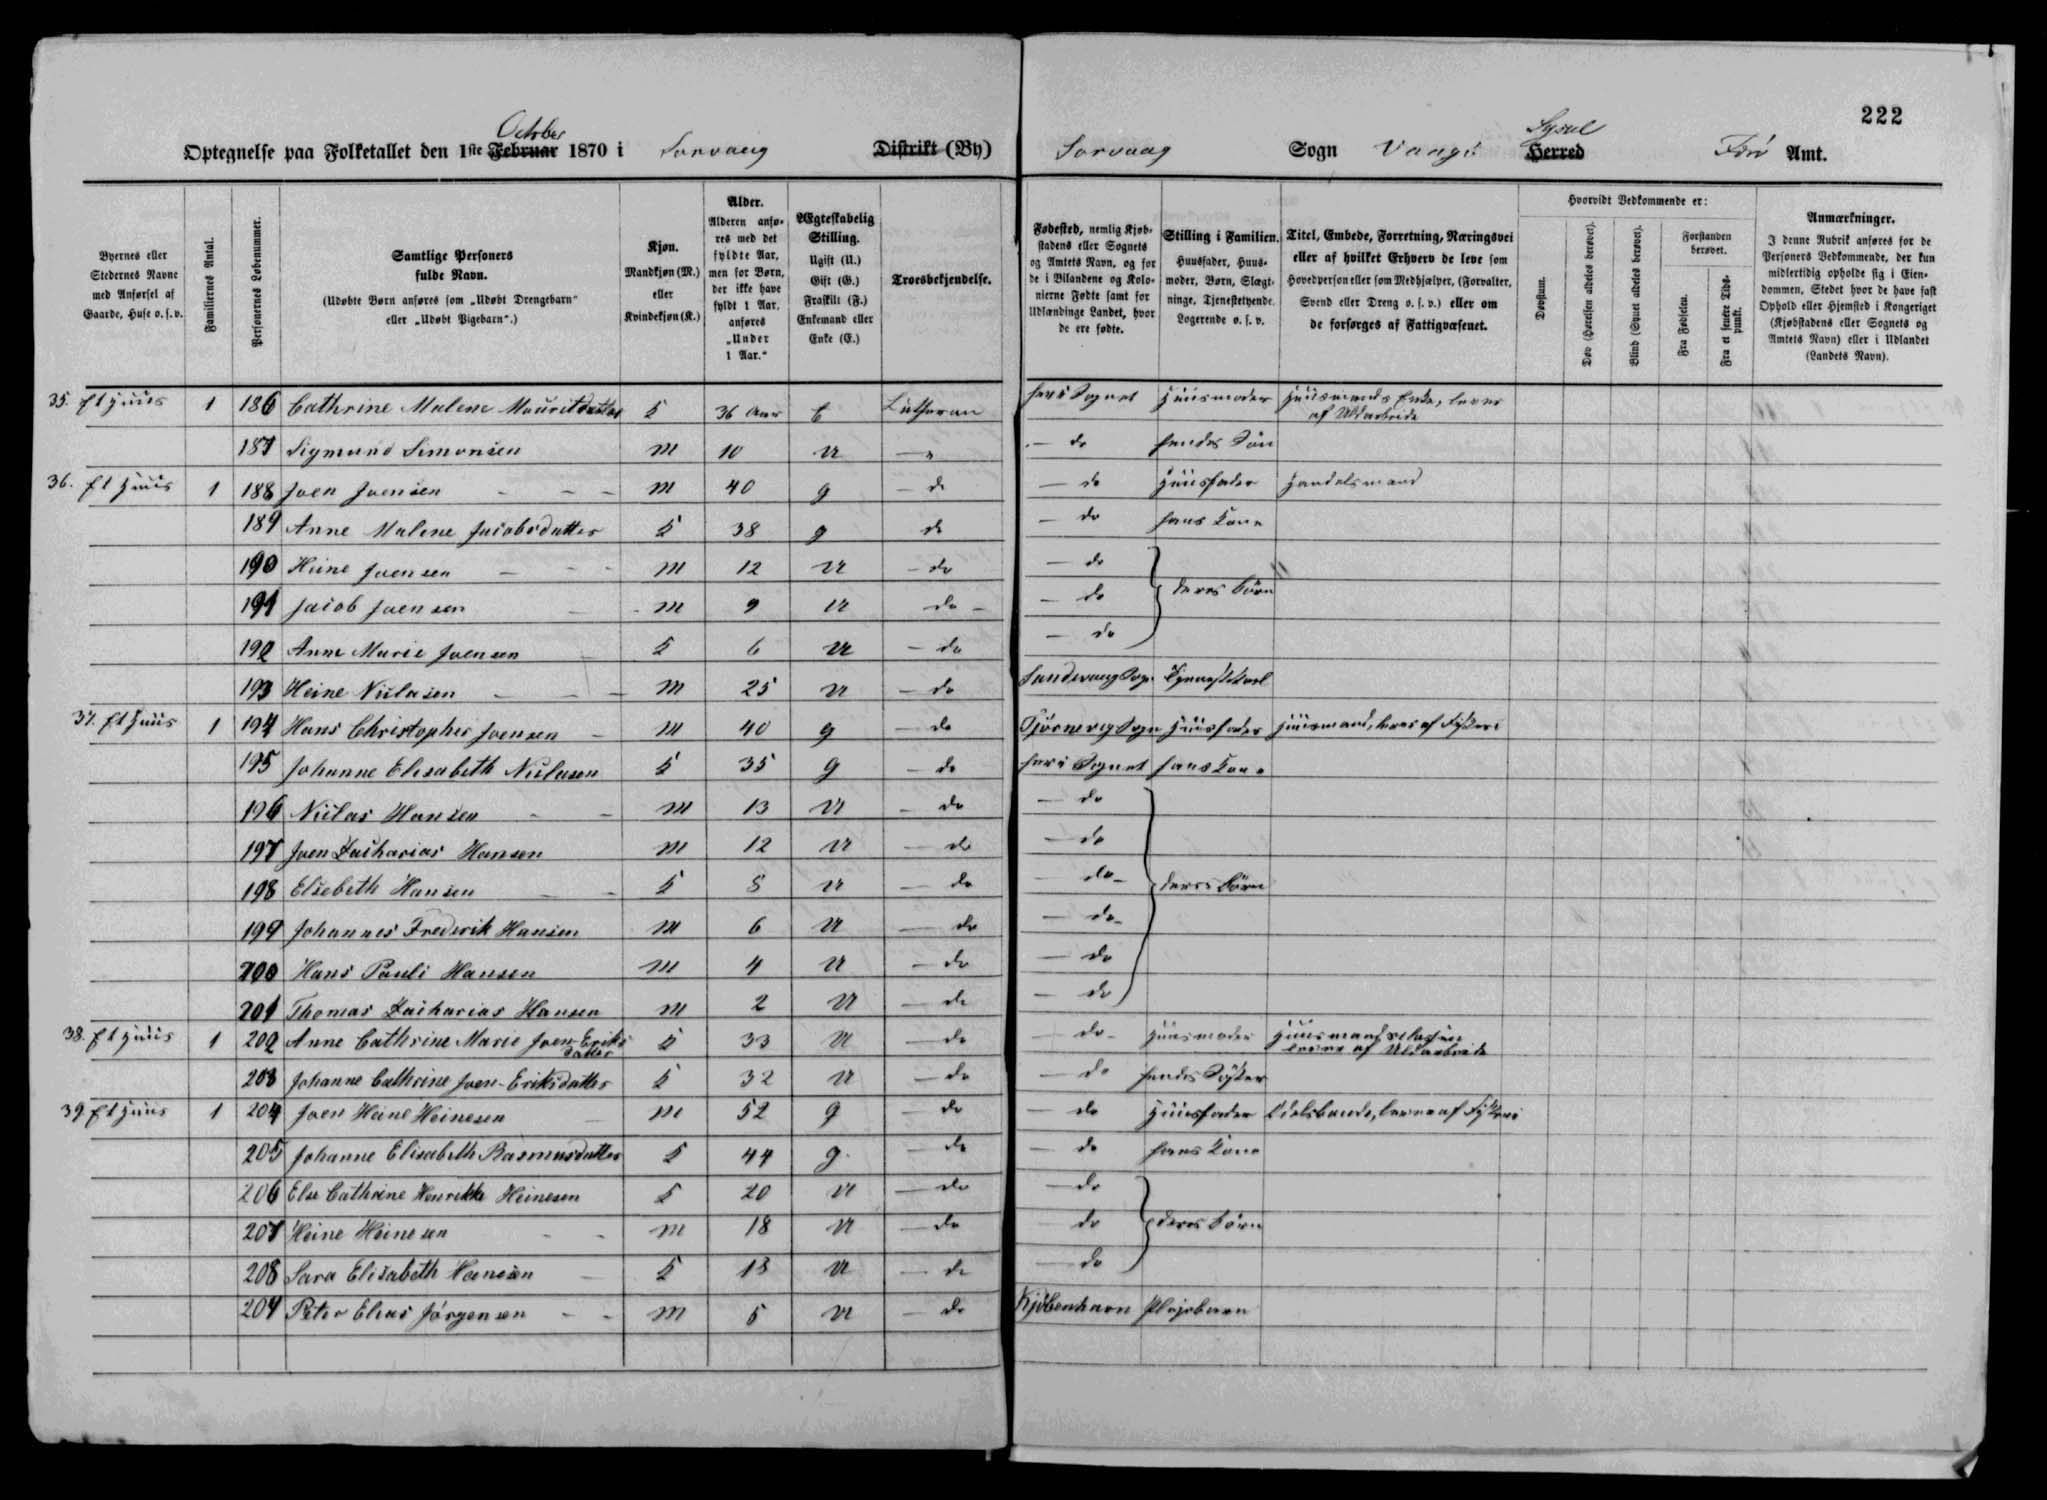 222
October
Sysel
Optegnelse paa Folketallet den 1ste Februar 1870 i Sorvaag Distrikt (By) Sorvaag Sogn Vaagø Herred Færø Amt.
Byernes eller Stedernes Navne med Anførsel af Gaarde, Huse o. s. v.
Familiernes Antal.
Personernes Løbenummer.
Samtlige Personers fulde Navn.
(Udøbte Børn anføres som „Udøbt Drengebarn" eller „Udøbt Pigebarn".)
Kjøn. Mandkjøn (M.) eller Kvindekjøn (K.)
Alder. Alderen anføres med det fyldte Aar, men for Børn, der ikke have fyldt 1 Aar, anføres „Under 1 Aar."
Ægteskabelig Stilling. Ugift (U.) Gift (G.) Fraskilt (F.) Enkemand eller Enke (E.)
Troesbekjendelse.
Fødested, nemlig Kjøbstadens eller Sognets og Amtets Navn, og for de i Bilandene og Kolonierne Fødte samt for Udlændinge Landet, hvor de ere fødte.
Stilling i Familien. Huusfader, Huusmoder, Børn, Slægtninge, Tjenestetyende, Logerende o. s. v.
Titel, Embede, Forretning, Næringsvei eller af hvilket Erhverv de leve som Hovedperson eller som Medhjælper, (Forvalter, Svend eller Dreng o. s. v.) eller om de forsørges af Fattigvæsenet.
Hvorvidt Vedkommende er:
Døvstum.
Døv (Hørelsen aldeles berøvet).
Blind (Synet aldeles berøvet).
Forstanden berøvet.
Fra Fødselen.
Fra et senere Tidspunkt.
Anmærkninger.
I denne Rubrik anføres for de Personers Vedkommende, der kun midlertidig opholde sig i Eiendommen, Stedet hvor de have fast Ophold eller Hjemsted i Kongeriget (Kjøbstadens eller Sognets og Amtets Navn) eller i Udlandet (Landets Navn).
35. Et Huus 1 186 Cathrine Malene Mouritsdatter K 36 Aar E Lutheran her i Sognet Huusmoder Huusmands Enke, lever
af Uldarbeide
187 Sigmund Simonsen M 10 U — " — do hendes Søn
36. Et Huus 1 188 Joen Joensen M 40 g — do — do Huusfader Handelsmand
189 Anne Malene Jacobsdatter K 38 g do — do hans Kone
190 Heine Joensen M 12 U — do — do
191 Jacob Joensen M 9 U do — — do deres Børn
192 Anne Marie Joensen K 6 U — do — do
193 Heine Niclasen M 25 U — do Sandevaag Sogn Tjenestekarl
37. Et Huus 1 194 Hans Christopher Joensen M 40 g — do Tjørnevig Sogn Huusfader Huusmand, lever af Fiskeri
195 Johanne Elisabeth Niclasen K 35 g — do her i Sognet hans Kone
196 Niclas Hansen M 13 U — do — do
197 Joen Zacharias Hansen M 12 U — do — do
198 Elsebeth Hansen K 8 U — do — do — deres Børn
199 Johannes Frederik Hansen M 6 U — do — do —
200 Hans Pauli Hansen M 4 U — do — do
201 Thomas Zacharias Hansen M 2 U — do — do
38. Et Huus 1 202 Anne Cathrine Marie Joen-Eriks K 33 U — do — do — Huusmoder
datter lever af Uldarbeide
203 Johanne Cathrine Joen-Eriksdatter K 32 U — do — do hendes Søster
39 Et Huus 1 204 Joen Heine Heinesen M 52 g — do — do Huusfader Odelsbonde, lever af Fiskeri
205 Johanne Elisabeth Rasmusdatter K 44 g. — do — do hans Kone
206 Else Cathrine Henrikke Heinesen K 20 U — do — do
207 Heine Heinesen M 18 U — do — do deres Børn
208 Sara Elisabeth Heinesen K 13 U — do — do
209 Peter Elias Jørgensen M 5 U — do Kjøbenhavn Plejebarn